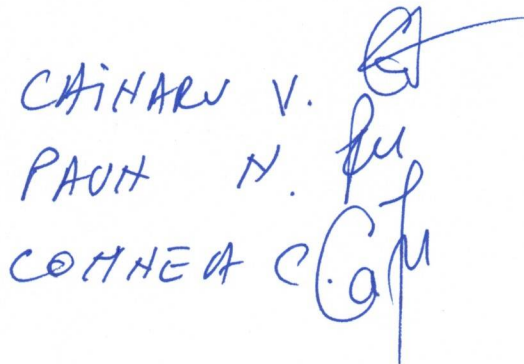 CAiNARU V.
PAUN N.
COMNEA C.